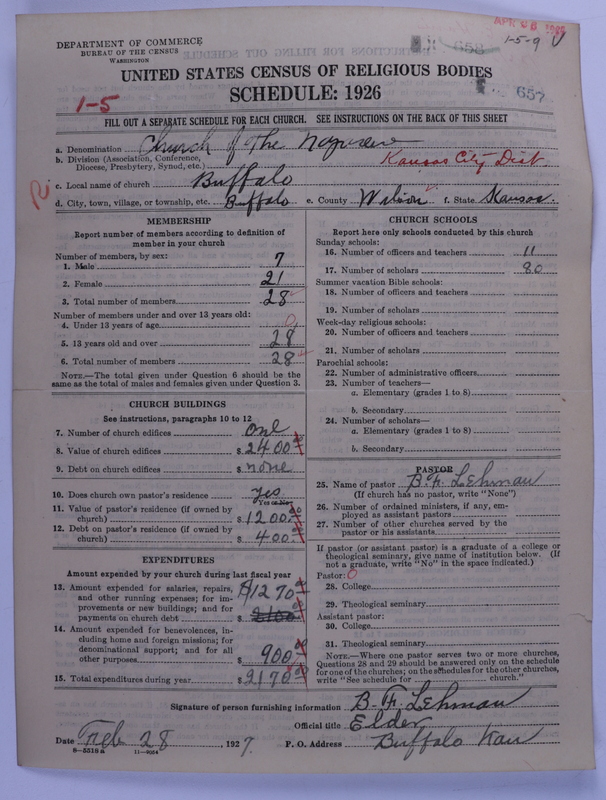 DEPARTMENT OF COMMERCE
BUREAU OF THE CENSUS
WASHINGTON
APR 1-5-9 V
658
657
UNITED STATES CENSUS OF RELIGIOUS BODIES
SCHEDULE: 1926
1-5
FILL OUT A SEPARATE SCHEDULE FOR EACH CHURCH. SEE INSTRUCTIONS ON THE BACK OF THIS SHEET
a. Denomination Church of The Nazarene
b. Division (Association, Conference, Diocese, Presbytery, Synod, etc.) Kansas City Dist.
c. Local name of church Buffalo
d. City, town, village, or township, etc. Buffalo e. County Wilson f. State Kansas.
MEMBERSHIP
Report number of members according to definition of
member in your church
Number of members, by sex:
1. Male 7
2. Female 21
3. Total number of members 28
Number of members under and over 13 years old:
4. Under 13 years of age 0
5. 13 years old and over 28
6. Total number of members 28
NOTE.—The total given under Question 6 should be the
same as the total of males and females given under Question 3.
CHURCH BUILDINGS
See instructions, paragraphs 10 to 12
7. Number of church edifices one
8. Value of church edifices $ 2400.00
9. Debt on church edifices $ none
10. Does church own pastor's residence yes
Yes or No
11. Value of pastor's residence (if owned by
church) $ 1200.00
12. Debt on pastor's residence (if owned by
church) $ 400.00
EXPENDITURES
Amount expended by your church during last fiscal year
13. Amount expended for salaries, repairs,
and other running expenses; for im-
provements or new buildings; and for
payments on church debt $ 1270.00
2100
14. Amount expended for benevolences, in-
cluding home and foreign missions; for
denominational support; and for all
other purposes $ 900.00
15. Total expenditures during year $ 2170.00
CHURCH SCHOOLS
Report here only schools conducted by this church
Sunday schools:
16. Number of officers and teachers 11
17. Number of scholars 80
Summer vacation Bible schools:
18. Number of officers and teachers
19. Number of scholars
Week-day religious schools:
20. Number of officers and teachers
21. Number of scholars
Parochial schools:
22. Number of administrative officers
23. Number of teachers—
a. Elementary (grades 1 to 8)
b. Secondary
24. Number of scholars—
a. Elementary (grades 1 to 8)
b. Secondary
PASTOR
25. Name of pastor B. F. Lehman
(If church has no pastor, write "None")
26. Number of ordained ministers, if any, em-
ployed as assistant pastors
27. Number of other churches served by the
pastor or his assistants
If pastor (or assistant pastor) is a graduate of a college or
theological seminary, give name of institution below. (If
not a graduate, write "No" in the space indicated.)
Pastor: 0
28. College
29. Theological seminary
Assistant pastor:
30. College
31. Theological seminary
NOTE.—Where one pastor serves two or more churches,
Questions 28 and 29 should be answered only on the schedule
for one of the churches; on the schedules for the other churches,
write "See schedule for church."
Signature of person furnishing information B. F. Lehman
Official title Elder
Date Feb 28, 1927. P. O. Address Buffalo Kan
8—5518a 11—9054